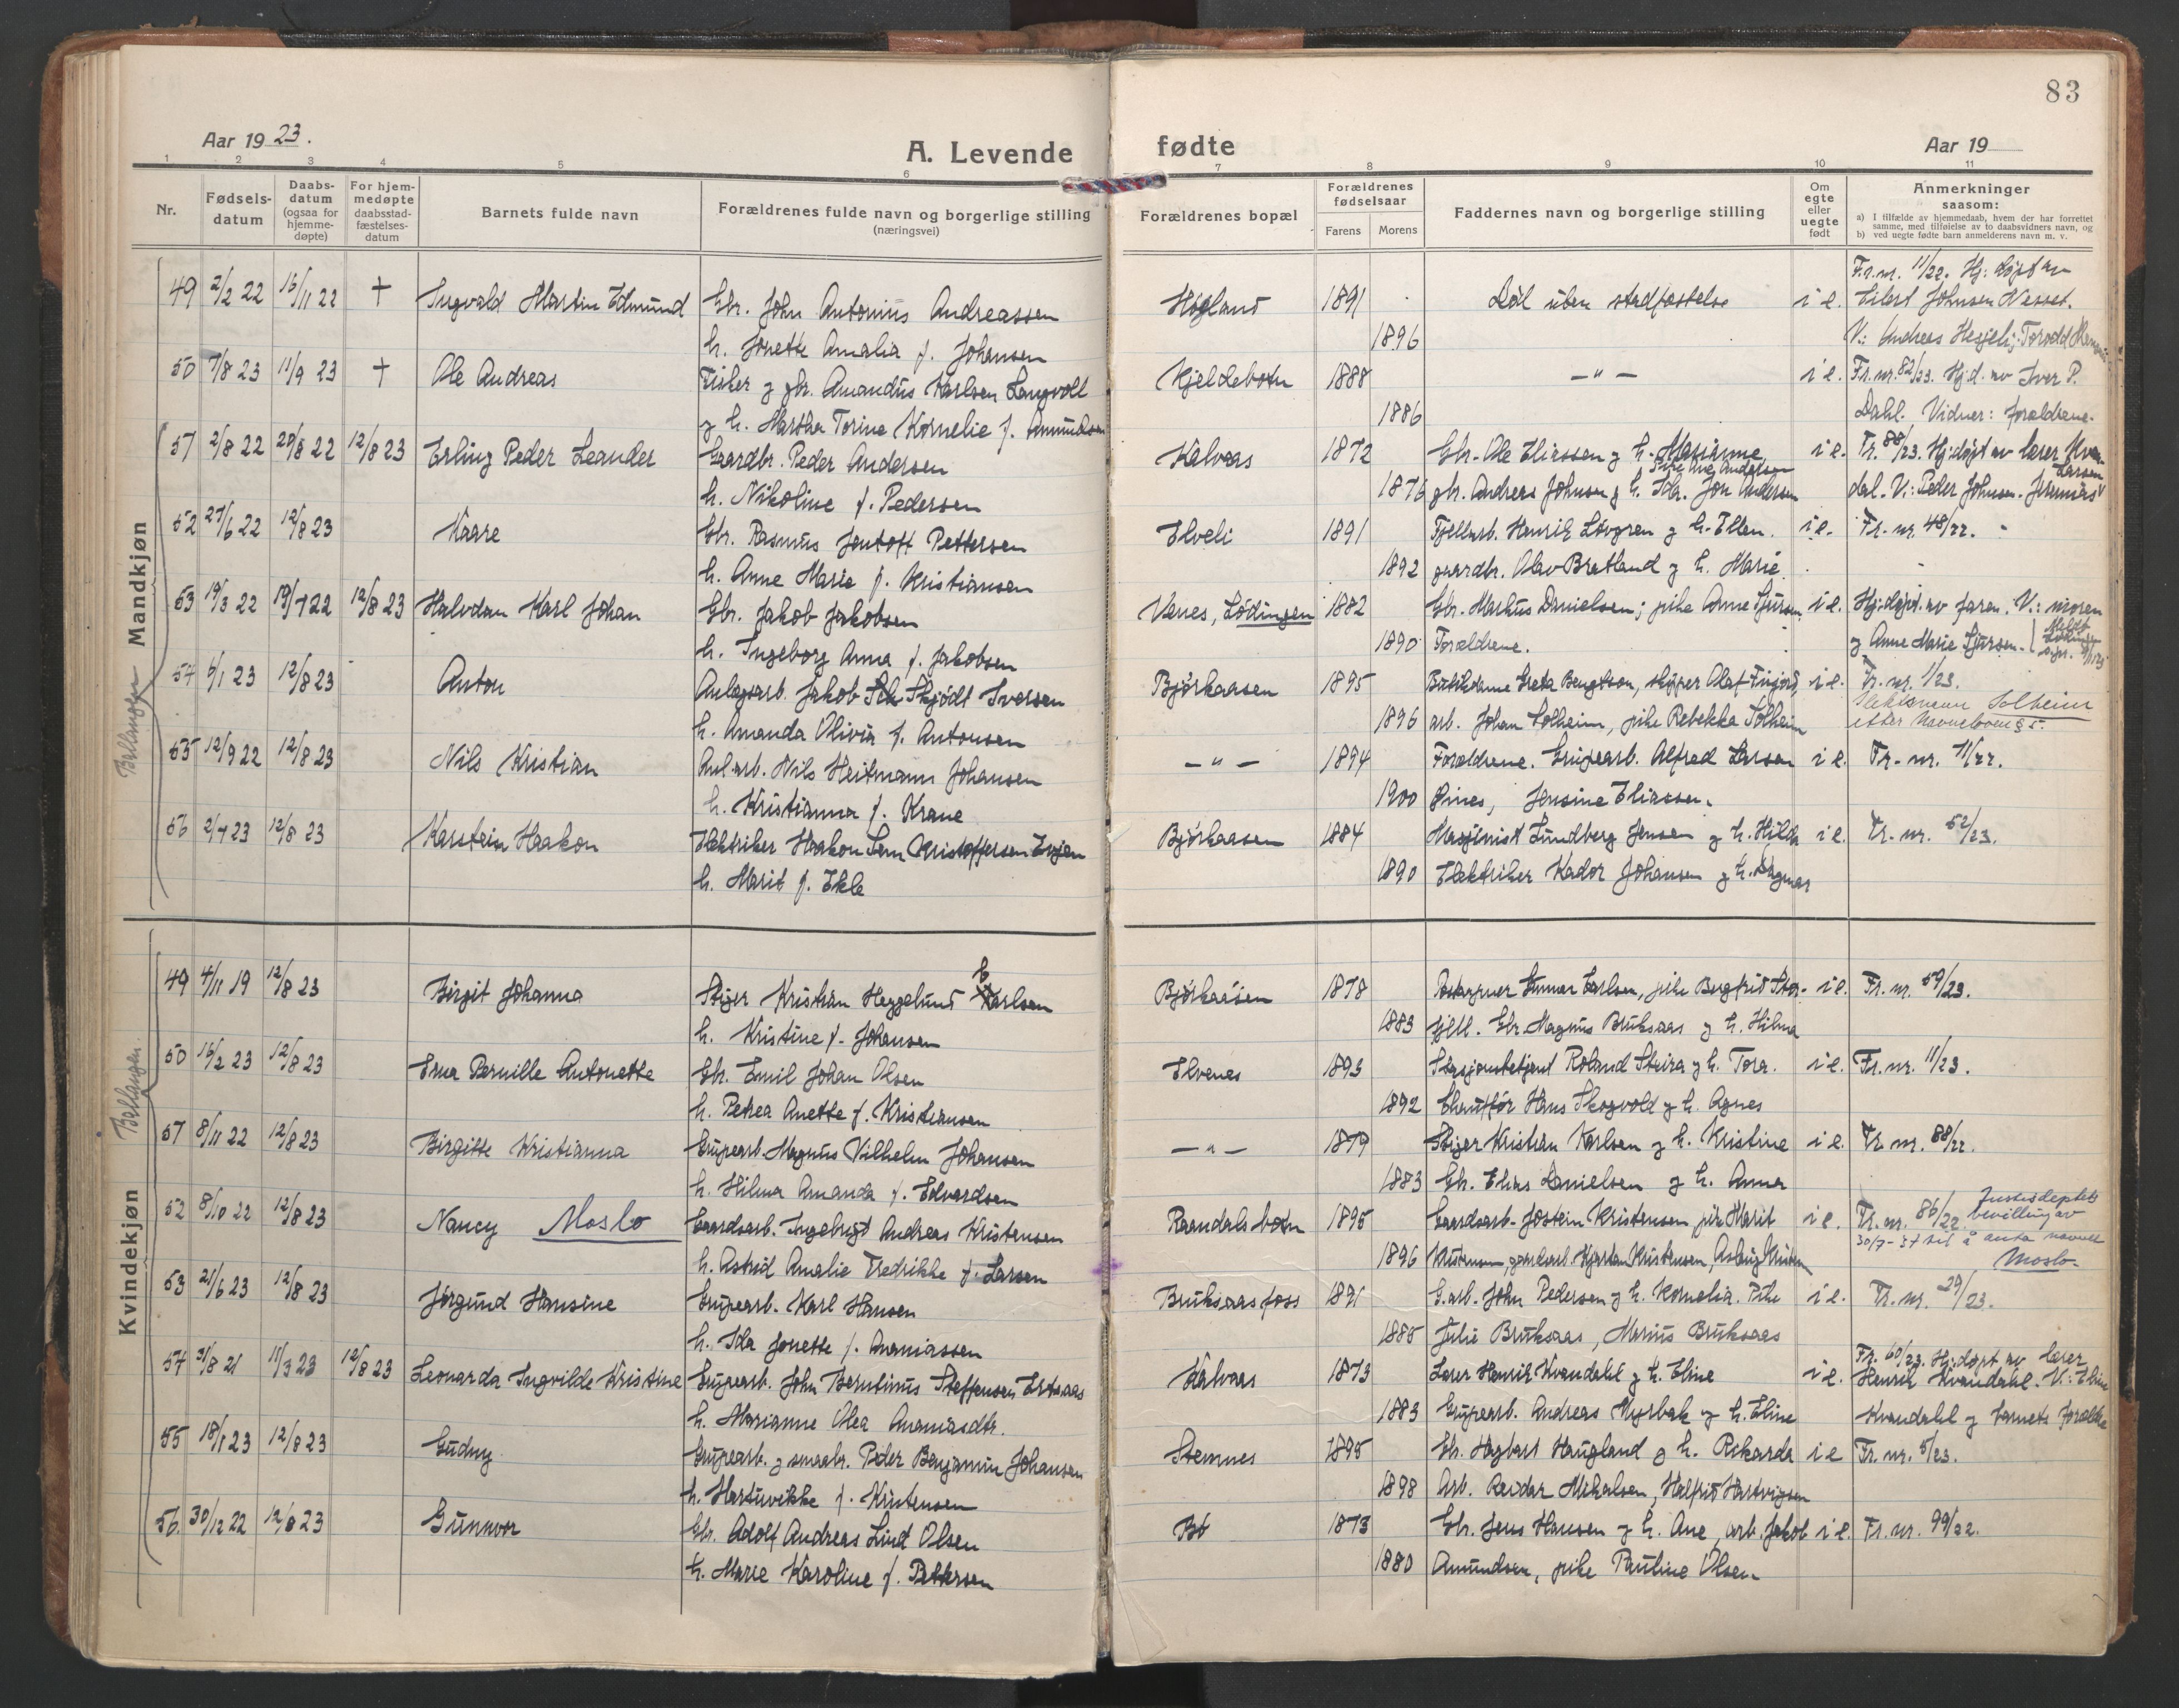 83
Aar 19 23.
A. Levende
fødte
Aar 19
1 2 3 4 5 6 7 8 9 10 11
Nr.
Fødsels-datum
Daabs-datum (ogsaa for hjemme-døpte)
For hjem-medøpte daabsstad-fæstelses-datum
Barnets fulde navn
Forældrenes fulde navn og borgerlige stilling (næringsvei)
Forældrenes bopæl
Forældrenes fødselsaar
Farens Morens
Faddernes navn og borgerlige stilling
Om egte eller uegte født
Anmerkninger saasom:
a) I tilfælde av hjemmedaab, hvem der har forrettet samme, med tilføielse av to daabsvidners navn, og
b) ved uegte fødte barn anmelderens navn m. v.
Mandkjøn
Ballangen
49 2/2 22 16/11 22 † Ingvald Martin Edmund Gbr. John Antonius Andreassen Hogland 1891 Död uten stadfæstelse i e. Fr. nr. 11/22. Hj: døpt av
h. Jonette Amalia f. Johansen 1896 Eilert Johnsen Nesset.
V.: Andreas Hesjeli, Torodd
50 7/8 23 11/9 23 † Ole Andreas Fisker og gbr. Amandus Karlsen Langvoll Kjeldebotn 1888 — " — i e. Fr. nr. 82/23. Hj.d. av Iver P.
og h. Martha Torine Kornelie f. Amundsen 1886 Dahl. Vidner: forældrene.
51 2/8 22 20/8 22 12/8 23 Erling Peder Leander Gaardbr. Peder Andersen Kalvaas 1872 Gbr. Ole Eliassen og h. Marianne, i e. Fr. 88/23. Hj:døpt av lærer Kvan-
h. Nikoline f. Pedersen 1876 gbr. Andreas Johnsen og h. Ida. Jon Andersen dal. V.: Peder Johnsen. Jeremias Larsen
52 27/6 22 12/8 23 Kaare Gbr. Rasmus Jentoft Pettersen Elveli 1891 Fjellarb. Henrik Lövgren og h. Ellen. i e. Fr. nr. 48/22.
h. Anne Marie f. Kristiansen 1892 gaardbr. Olav Bratland og h. Marie.
53 19/3 22 19/7 22 12/8 23 Halvdan Karl Johan Gbr. Jakob Jakobsen Venes, Lödingen 1882 Gbr. Markus Danielsen; pike Anne Sjursen. i e. Hj:døpt. av faren. V.: moren
h. Ingeborg Anna f. Jakobsen 1890 Forældrene. og Anne Marie Sjursen.
54 6/1 23 12/8 23 Anton Anlægsarb. Jakob Skjödt Iversen Bjørkaasen 1895 Butikdame Greta Bengtson, skiper Olaf Finjord, i e. Fr. nr. 1/23.
h. Amanda Olivia f. Antonsen 1896 arb. Johan Solheim, pike Rebekka Solheim Slektsnavn Solheim
etter Navneloven § 5.
55 12/9 22 12/8 23 Nils Kristian Anl.arb. Nils Heitmann Johansen — " — 1894 Forældrene. Grupearb. Alfred Larsen i e. Fr. nr. 71/22.
h. Kristianna f. Krane 1900 Øines, Jensine Eliassen.
56 2/7 23 12/8 23 Karstein Haakon Elektriker Haakon Kristoffersen Evjen Bjørkaasen 1884 Maskinist Lundberg Jensen og h. Hilda i e. Fr. nr. 52/23.
h. Marit f. Ekle 1890 Elektriker Kador Johansen og h. Dagmar
Kvindekjøn
Ballangen.
49 4/11 19 12/8 23 Birgit Johanna Stiger Kristian Heggelund Carlsen Bjørkaasen 1878 Gunnar Carlsen, pike Bergfrid Stor- i e. Fr. nr. 59/23.
h. Kristine f. Johansen 1883 fjell. Gbr. Magnus Bruksaas og h. Hilma
50 16/2 23 12/8 23 Erna Pernille Antonette Gbr. Emil Johan Olsen Elvenes 1893 Stasjonsbetjent Roland Skeira og h. Tora. i e. Fr. nr. 11/23.
h. Petrea Anette f. Kristiansen 1892 Chauffør Hans Skogvold og h. Agnes
51 8/11 22 12/8 23 Birgitte Kristianna Grupearb. Magnus Vilhelm Johansen — " — 1879 Stiger Kristian Karlsen og h. Kristine i e. Fr. nr. 88/22.
h. Hilma Amanda f. Edvardsen 1883 Gbr. Elias Danielsen og h. Anna
52 8/10 22 12/8 23 Nancy Moslo Gaardsarb. Ingebrigt Andreas Kristensen Raandalsbotn 1895 Gaardsarb. Jostein Kristensen, pike Marit i e. Fr. nr. 86/22. Justisdeptets bevilling av
h. Astrid Amalie Fredrikke f. Larsen 1896 Kristensen, gaardsarb. Kjartan Kristensen, Aslaug Kristensen 30/7-37 til å anta navnet
Moslo
53 21/6 23 12/8 23 Jørgund Hansine Grupearb. Karl Hansen Bruksaasfoss 1891 G.arb. John Pedersen og h. Kornelia. Pike i e. Fr. nr. 29/23.
h. Ida Jonette f. Ananiassen 1885 Julie Bruksaas, Marius Bruksaas
54 31/8 21 11/3 23 12/8 23 Leonarda Ingvilde Kristine Grupearb. John Berntinus Steffensen Ertsaas Kalvaas 1873 Lærer Henrik Kvandahl og h. Eline i e. Fr. 60/23. Hj:døpt av lærer
Henrik Kvandahl. V.: Eline
h. Marianne Olea Ananiasdtr. 1883 Grupearb. Andreas Myrbak og h. Eline Kvandahl og barnets forældre
55 18/1 23 12/8 23 Gudny Grupearb. og smaabr. Peder Benjamin Johansen Stemnes 1895 Gbr. Hagbart Haugland og h. Rikarda i e Fr. nr. 5/23.
h. Hartuvikke f. Kristensen 1898 Arb. Reidar Mikalsen, Halfrid Hartvigsen
56 30/12 22 12/8 23 Gunnvor Gbr. Adolf Andreas Lind Olsen Bø 1873 Gbr. Jens Hansen og h. Ane, arb. Jakob i e. Fr. nr. 99/22.
h. Marie Karoline f. Pettersen 1880 Amundsen, pike Pauline Olsen